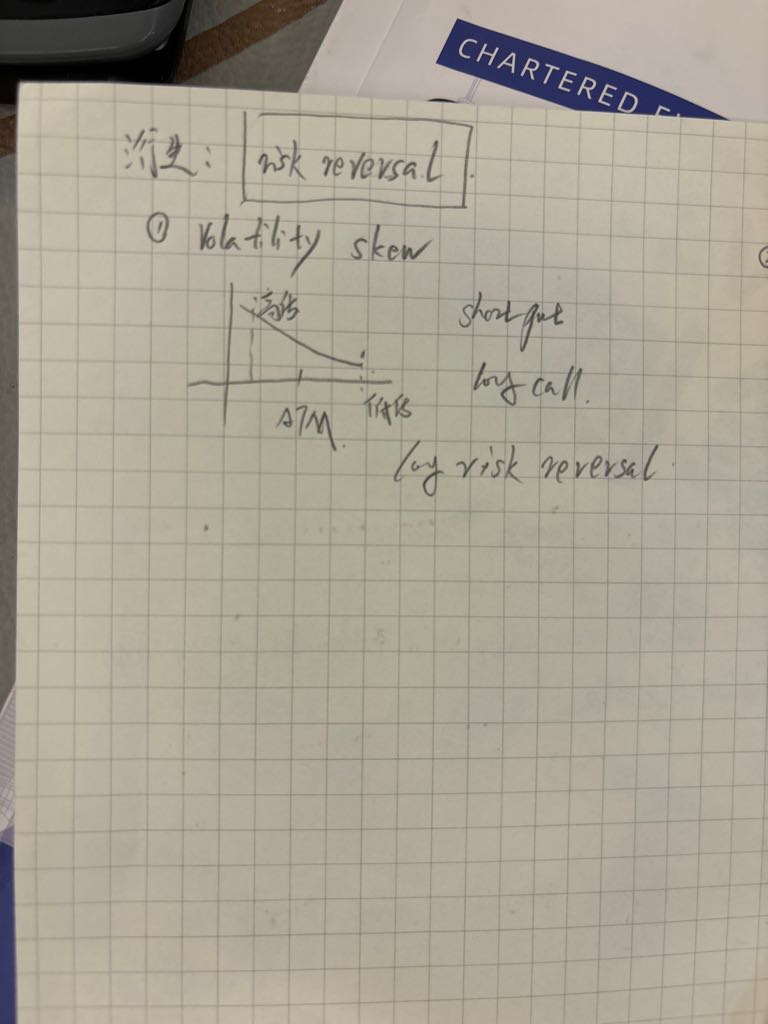 CHARTERED
衍生: risk reversal.
① Volatility skew
高估
short put
long call.
ATM.
低估
long risk reversal.